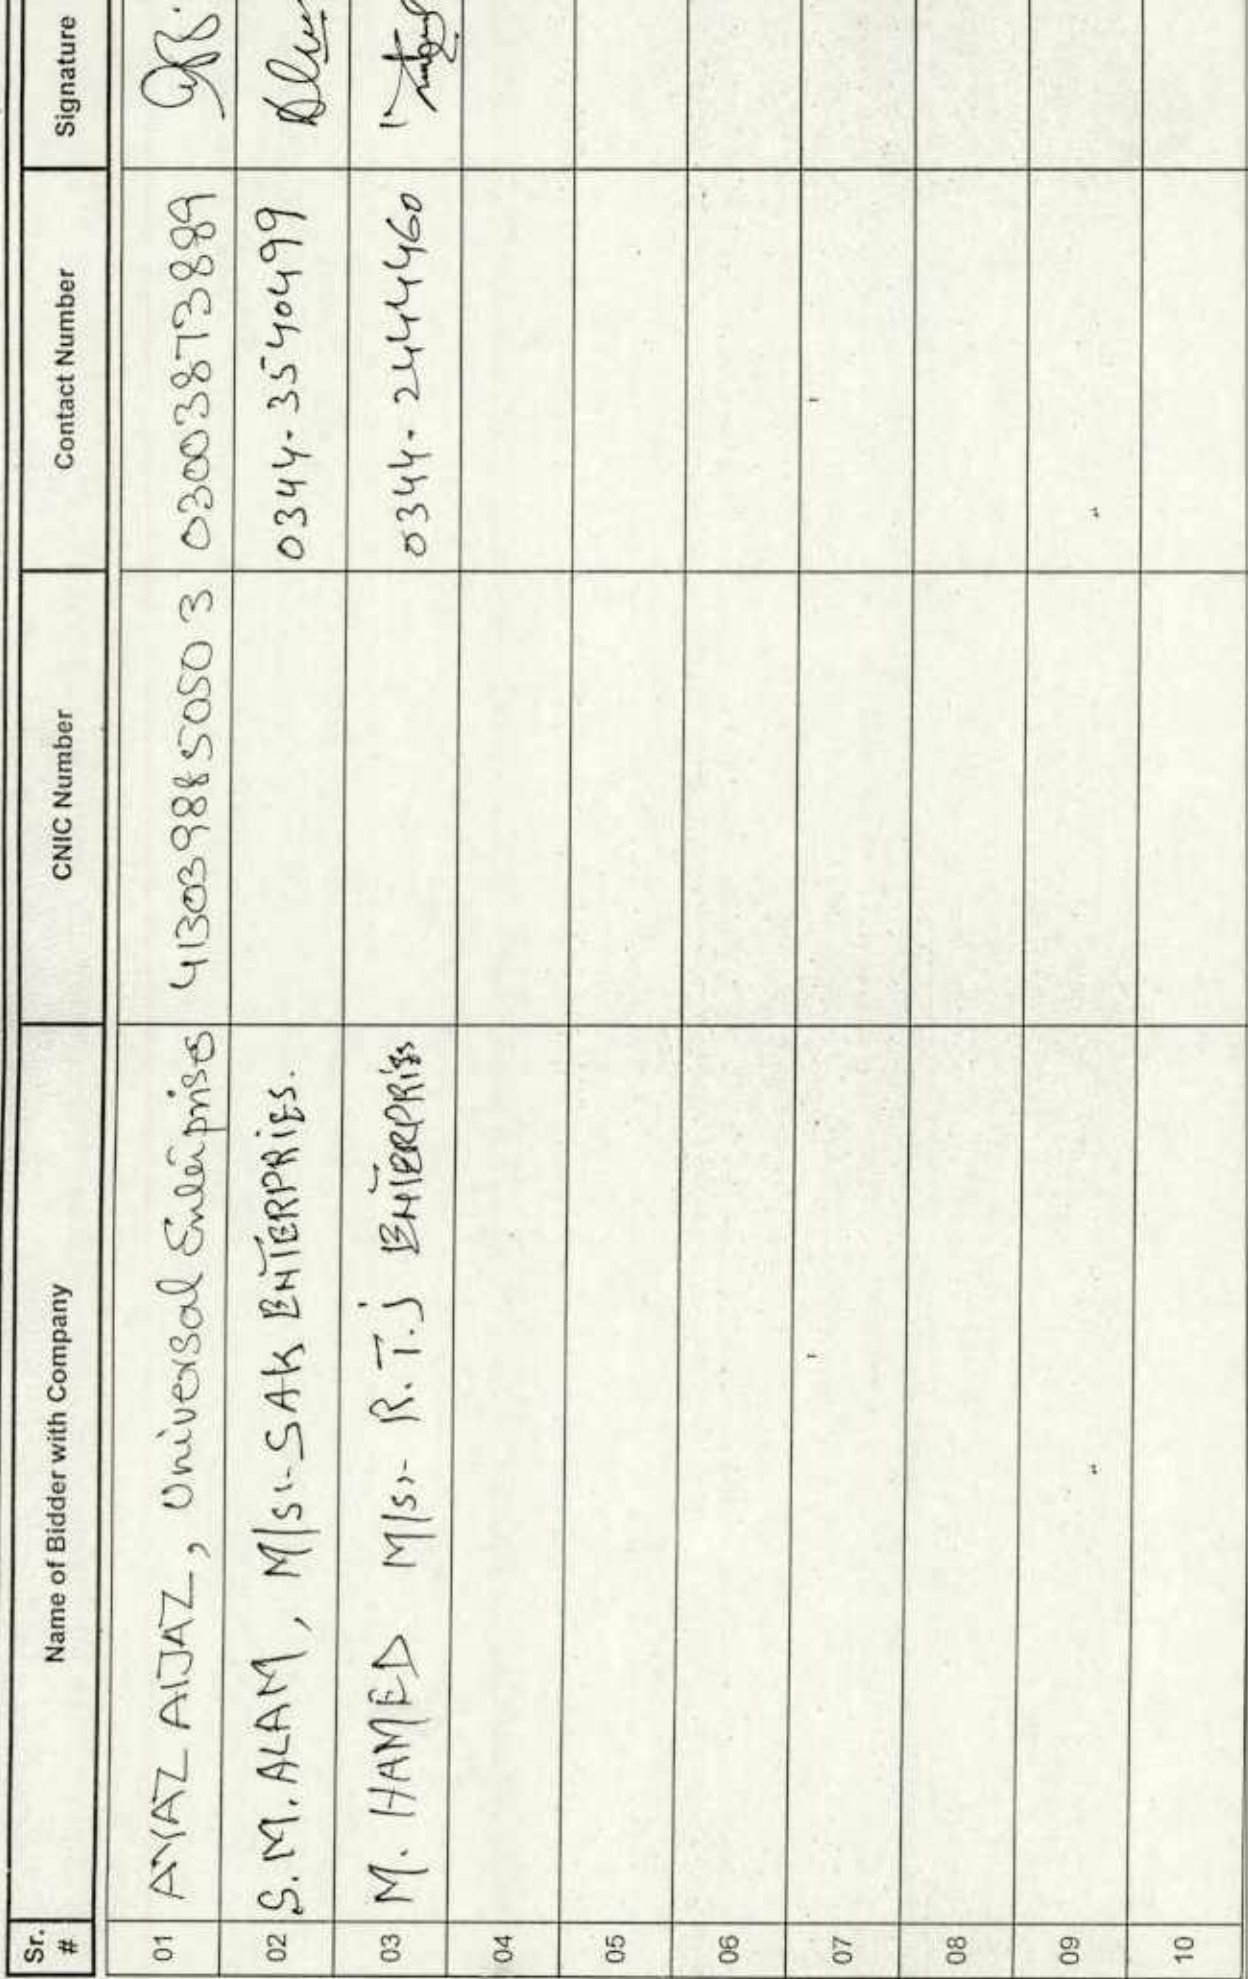 Sr. # Name of Bidder with Company CNIC Number Contact Number Signature
01 AYAZ AIJAZ, Universal Enterprise 4130398850503 03003873889
02 S.M. ALAM, M/s:- SAK ENTERPRIES. 0344-3540499
03 M. HAMED M/s:- R.T.J ENTERPRIES 0344-2444460
04
05
06
07
08
09
10